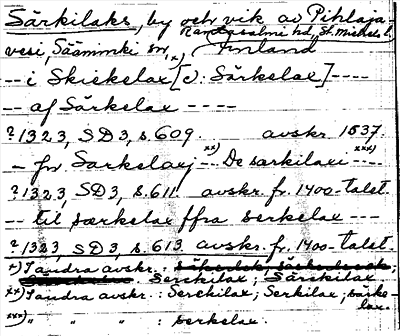 Särkilaks, by och vik av Pihlaja-
vesi, Sääminki sn, x) Rantasalmi hd, St. Michels l.
Finland
-- i Skiekelax [ɔ: Särkelax] ----
-- af Särkelax -- ----
? 1323, SD 3, s. 609. avskr. 1537.
-- fm Sarkelaxj xx) -- De sarkilaxi xxx) ----
? 1323, SD 3, s. 611 avskr. fr. 1400-talet.
-- til særkelax ffra serkelax --
? 1323, SD 3, s. 613. avskr. fr. 1400-talet.
x) I andra avskr.:
Serckilax; Särkilax
xx) I andra avskr.: Serchilax; Serkilax; särke-
lax.
xxx) " " " : serkelax.